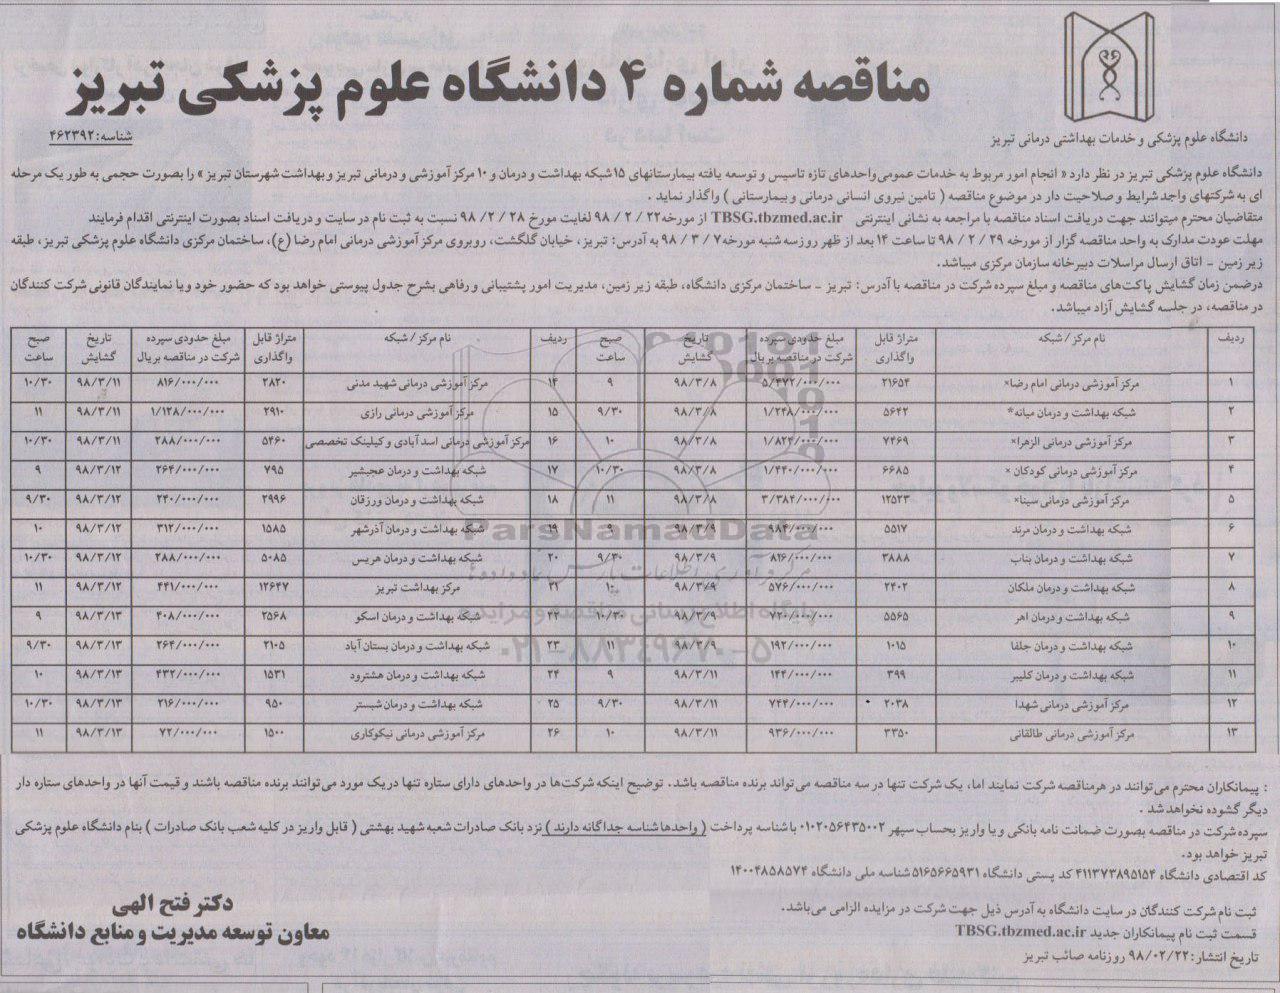 مناقصه شماره ۴ دانشگاه علوم پزشکی تبریز
شناسه: ۴۶۲۳۹۲
دانشگاه علوم پزشکی و خدمات بهداشتی درمانی تبریز
دانشگاه علوم پزشکی تبریز در نظر دارد « انجام امور مربوط به خدمات عمومی واحدهای تازه تاسیس و توسعه یافته بیمارستانهای ۱۵ شبکه بهداشت و درمان و ۱۰ مرکز آموزشی و درمانی تبریز و بهداشت شهرستان تبریز » را بصورت حجمی به طور یک مرحله
ای به شرکتهای واجد شرایط و صلاحیت دار در موضوع مناقصه ( تامین نیروی انسانی درمانی و بیمارستانی ) واگذار نماید .
متقاضیان محترم میتوانند جهت دریافت اسناد مناقصه با مراجعه به نشانی اینترنتی TBSG.tbzmed.ac.ir از مورخه ۹۸ / ۲ / ۲۲ لغایت مورخ ۹۸ / ۲ / ۲۸ نسبت به ثبت نام در سایت و دریافت اسناد بصورت اینترنتی اقدام فرمایند
مهلت عودت مدارک به واحد مناقصه گزار از مورخه ۹۸ / ۲ / ۲۹ تا ساعت ۱۴ بعد از ظهر روز سه شنبه مورخه ۹۸ / ۳ / ۷ به آدرس: تبریز، خیابان گلگشت، روبروی مرکز آموزشی درمانی امام رضا (ع)، ساختمان مرکزی دانشگاه علوم پزشکی تبریز، طبقه
زیر زمین - اتاق ارسال مراسلات دبیرخانه سازمان مرکزی میباشد.
درضمن زمان گشایش پاکت‌های مناقصه و مبلغ سپرده شرکت در مناقصه با آدرس: تبریز - ساختمان مرکزی دانشگاه، طبقه زیر زمین، مدیریت امور پشتیبانی و رفاهی بشرح جدول پیوستی خواهد بود که حضور خود و یا نمایندگان قانونی شرکت کنندگان
در مناقصه، در جلسه گشایش آزاد میباشد.
ردیف نام مرکز / شبکه متراژ قابل واگذاری مبلغ حدودی سپرده شرکت در مناقصه بریال تاریخ گشایش صبح ساعت ردیف نام مرکز / شبکه متراژ قابل واگذاری مبلغ حدودی سپرده شرکت در مناقصه بریال تاریخ گشایش صبح ساعت
۱ مرکز آموزشی درمانی امام رضا× ۲۱۶۵۴ ۵/۴۷۲/۰۰۰/۰۰۰ ۹۸/۳/۸ ۹ ۱۴ مرکز آموزشی درمانی شهید مدنی ۲۸۲۰ ۸۱۶/۰۰۰/۰۰۰ ۹۸/۳/۱۱ ۱۰/۳۰
۲ شبکه بهداشت و درمان میانه* ۵۶۴۲ ۱/۲۴۸/۰۰۰/۰۰۰ ۹۸/۳/۸ ۹/۳۰ ۱۵ مرکز آموزشی درمانی رازی ۲۹۱۰ ۱/۱۲۸/۰۰۰/۰۰۰ ۹۸/۳/۱۱ ۱۱
۳ مرکز آموزشی درمانی الزهرا× ۷۴۶۹ ۱/۸۲۴/۰۰۰/۰۰۰ ۹۸/۳/۸ ۱۰ ۱۶ مرکز آموزشی درمانی اسد آبادی و کیلینک تخصصی ۵۴۶۰ ۲۸۸/۰۰۰/۰۰۰ ۹۸/۳/۱۱ ۱۰/۳۰
۴ مرکز آموزشی درمانی کودکان × ۶۶۸۵ ۱/۴۴۰/۰۰۰/۰۰۰ ۹۸/۳/۸ ۱۰/۳۰ ۱۷ شبکه بهداشت و درمان عجبشیر ۷۹۵ ۲۶۴/۰۰۰/۰۰۰ ۹۸/۳/۱۲ ۹
۵ مرکز آموزشی درمانی سینا× ۱۲۵۲۳ ۳/۳۸۴/۰۰۰/۰۰۰ ۹۸/۳/۸ ۱۱ ۱۸ شبکه بهداشت و درمان ورزقان ۲۹۹۶ ۲۴۰/۰۰۰/۰۰۰ ۹۸/۳/۱۲ ۹/۳۰
۶ شبکه بهداشت و درمان مرند ۵۵۱۷ ۹۸۴/۰۰۰/۰۰۰ ۹۸/۳/۹ ۹ ۱۹ شبکه بهداشت و درمان آذرشهر ۱۵۸۵ ۳۱۲/۰۰۰/۰۰۰ ۹۸/۳/۱۲ ۱۰
۷ شبکه بهداشت و درمان بناب ۳۸۸۸ ۸۱۶/۰۰۰/۰۰۰ ۹۸/۳/۹ ۹/۳۰ ۲۰ شبکه بهداشت و درمان هریس ۵۰۸۵ ۲۸۸/۰۰۰/۰۰۰ ۹۸/۳/۱۲ ۱۰/۳۰
۸ شبکه بهداشت و درمان ملکان ۲۴۰۲ ۵۷۶/۰۰۰/۰۰۰ ۹۸/۳/۹ ۱۰ ۲۱ مرکز بهداشت تبریز ۱۲۶۴۷ ۴۴۱/۰۰۰/۰۰۰ ۹۸/۳/۱۲ ۱۱
۹ شبکه بهداشت و درمان اهر ۵۵۶۵ ۷۲۰/۰۰۰/۰۰۰ ۹۸/۳/۹ ۱۰/۳۰ ۲۲ شبکه بهداشت و درمان اسکو ۲۵۶۸ ۴۰۸/۰۰۰/۰۰۰ ۹۸/۳/۱۳ ۹
۱۰ شبکه بهداشت و درمان جلفا ۱۰۱۵ ۱۹۲/۰۰۰/۰۰۰ ۹۸/۳/۹ ۱۱ ۲۳ شبکه بهداشت و درمان بستان آباد ۲۱۰۵ ۲۶۴/۰۰۰/۰۰۰ ۹۸/۳/۱۳ ۹/۳۰
۱۱ شبکه بهداشت و درمان کلیبر ۳۹۹ ۱۴۴/۰۰۰/۰۰۰ ۹۸/۳/۱۱ ۹ ۲۴ شبکه بهداشت و درمان هشترود ۱۵۳۱ ۴۳۲/۰۰۰/۰۰۰ ۹۸/۳/۱۳ ۱۰
۱۲ مرکز آموزشی درمانی شهدا ۲۰۳۸ ۷۴۴/۰۰۰/۰۰۰ ۹۸/۳/۱۱ ۹/۳۰ ۲۵ شبکه بهداشت و درمان شبستر ۹۵۰ ۲۱۶/۰۰۰/۰۰۰ ۹۸/۳/۱۳ ۱۰/۳۰
۱۳ مرکز آموزشی درمانی طالقانی ۳۳۵۰ ۹۳۶/۰۰۰/۰۰۰ ۹۸/۳/۱۱ ۱۰ ۲۶ مرکز آموزشی درمانی نیکوکاری ۱۵۰۰ ۷۲/۰۰۰/۰۰۰ ۹۸/۳/۱۳ ۱۱
ParsNamadData
پایگاه اطلاع رسانی مناقصه و مزایده
۰۲۱-۸۸۳۴۹۶۷۰-۵
: پیمانکاران محترم می‌توانند در هر مناقصه شرکت نمایند اما، یک شرکت تنها در سه مناقصه می‌تواند برنده مناقصه باشد. توضیح اینکه شرکت‌ها در واحدهای دارای ستاره تنها در یک مورد می‌توانند برنده مناقصه باشند و قیمت آنها در واحدهای ستاره دار
دیگر گشوده نخواهد شد .
سپرده شرکت در مناقصه بصورت ضمانت نامه بانکی و یا واریز بحساب سپهر ۰۱۰۲۰۵۶۴۳۵۰۰۲ با شناسه پرداخت ( واحدها شناسه جداگانه دارند ) نزد بانک صادرات شعبه شهید بهشتی ( قابل واریز در کلیه شعب بانک صادرات ) بنام دانشگاه علوم پزشکی
تبریز خواهد بود.
کد اقتصادی دانشگاه ۴۱۱۳۷۳۸۹۵۱۵۴ کد پستی دانشگاه ۵۱۶۵۶۶۵۹۳۱ شناسه ملی دانشگاه ۱۴۰۰۴۸۵۸۵۷۴
ثبت نام شرکت کنندگان در سایت دانشگاه به آدرس ذیل جهت شرکت در مزایده الزامی می‌باشد.
قسمت ثبت نام پیمانکاران جدید TBSG.tbzmed.ac.ir
تاریخ انتشار: ۹۸/۰۲/۲۲ روزنامه صائب تبریز
دکتر فتح الهی
معاون توسعه مدیریت و منابع دانشگاه